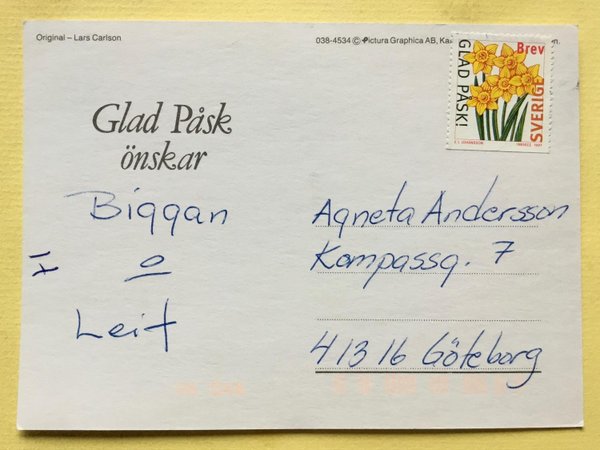 Original – Lars Carlson
038-4534 © Pictura Graphica AB,
Brev
GLAD PÅSK!
SVERIGE
Glad Påsk
önskar
Biggan
o
Leif
Agneta Andersson
Kompassg. 7
413 16 Göteborg